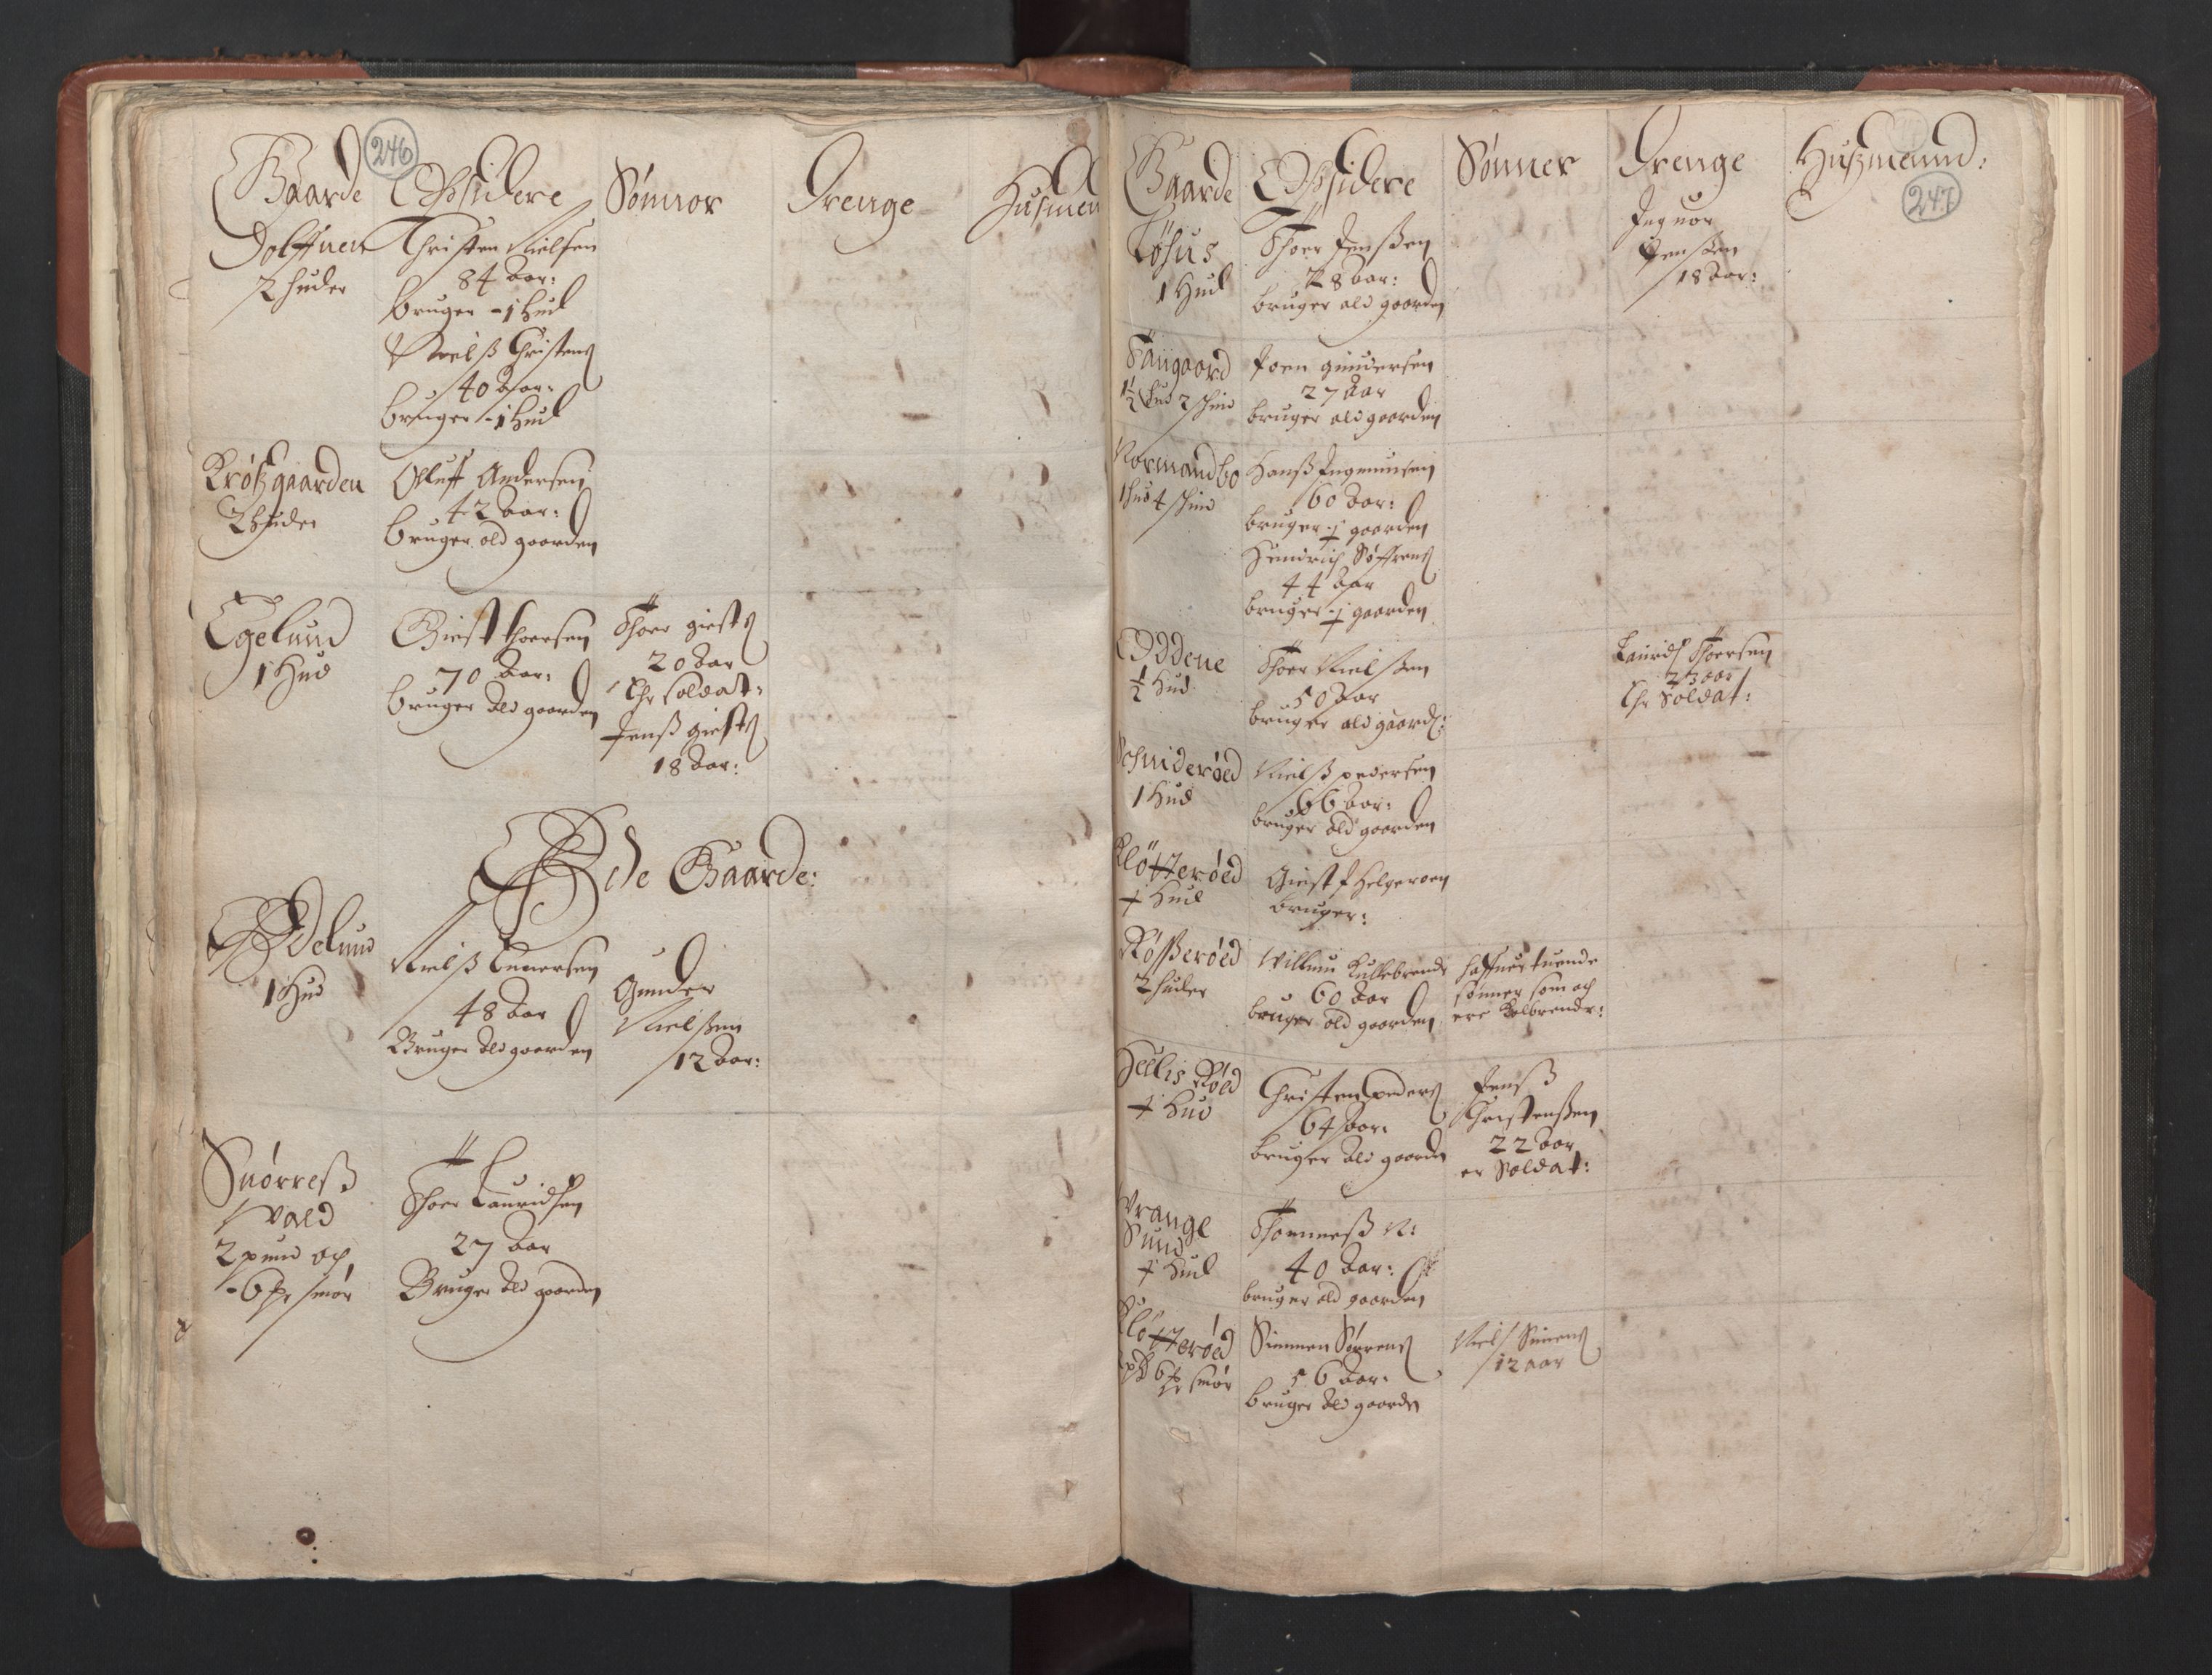 246
Gaarde Opsidere Sønner Drenge Husmen
Dolffuen
2 huder
Christen Nielsen
84 aar:
bruger - 1 Hud
Nielß Christens
40 aar:
bruger - 1 Hud
Krøßgaarden
2 huder
Olluff Andersen
42 aar:
bruger ald gaarden
Egelund
1 Hud
Giest thoersen
70 aar:
bruger ald gaarden
Thoer giests
20 aar
Chr Soldat:
Jenß giests
18 aar:
Øde Gaarde:
Ødelund
1 Hud
Nielß
48 aar
Bruger ald gaarden
Gunder
Nielßen
12 aar:
Snørreß
vald
2 pund och
6 smør
Thoer Lauridsen
27 aar
Bruger ald gaarden
247
Gaarde Opsidere Sønner Drenge Hußmænd:
Løhus
1 Hud
Thoer Jenßen
28 aar:
bruger ald gaarden
Inguor
Jenßen
18 aar:
Faugaard
1½ hud 2 skind
Joen gundersen
27 aar
bruger ald gaarden
Normandbo
1 hud 4 skind
Hanß Ingmunsen
60 aar:
bruger ½ gaarden
Hendrich Søffrens
44 aar
bruger ½ gaarden
Oddene
½ Hud
Thoer Nielßen
50 aar
bruger ald gaard:
Laurids Thoersen
23 aar
Chr Soldat:
Schmiderøed
1 Hud
Nielß pedersen
66 aar:
bruger ald gaarden
Kløtterøed
½ Hud
Giest p Helgeroen
bruger:
Røßerøed
2 huder
Willum Kullebrende
60 aar
bruger ald gaarden
haffuer tuende
sønner som och
ere Kolbrendr:
Hellis Røed
½ Hud
Christen peders
64 aar:
bruger ald gaarden
Jenß
Christenßen
22 aar
er Soldat:
Vrange
Sund
½ Hud
Thommeß N:
40 aar:
bruger ald gaarden
Kløtterøed
6 smør
Simmen Sørrens
56 aar:
bruger ald gaarden
Niels Simens
12 aar